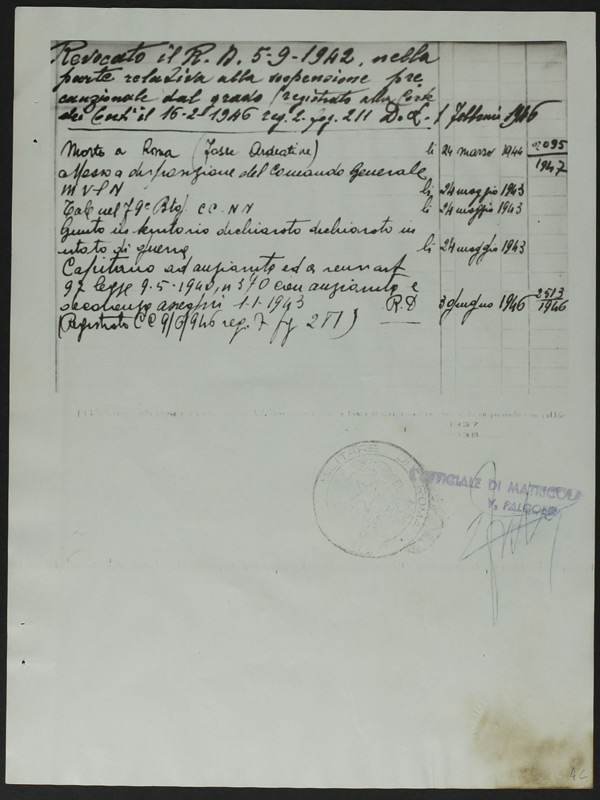 Revocato il R. D. 5-9-1942, nella
parte relativa alla sospensione pre
cauzionale dal grado (registrato alla Corte
dei Conti il 16-2-1946 reg. 2. fg. 211 D. L. 1 Febbraio 1946
Morto a Roma (Fosse Ardeatine) li 24 marzo 1944 2095
1947
Messo a disposizione del Comando Generale
M V S N li 24 maggio 1943
Tale nel 79º Btg. CC. NN li 24 maggio 1943
Giunto in territorio dichiarato dichiarato in
stato di guerra li 24 maggio 1943
Capitano ad anzianità ed a senso art
97 legge 9-5-1940, n 370 con anzianità e
decorrenza assegni 1.1.1943 R.D 3 giugno 1946 2513
1946
(Registrato CC 9/6/946 reg. 7 fg 211)
1937
38
MILITARE DI ROMA
L'UFFICIALE DI MATRICOLA
V. FALCONE
AC